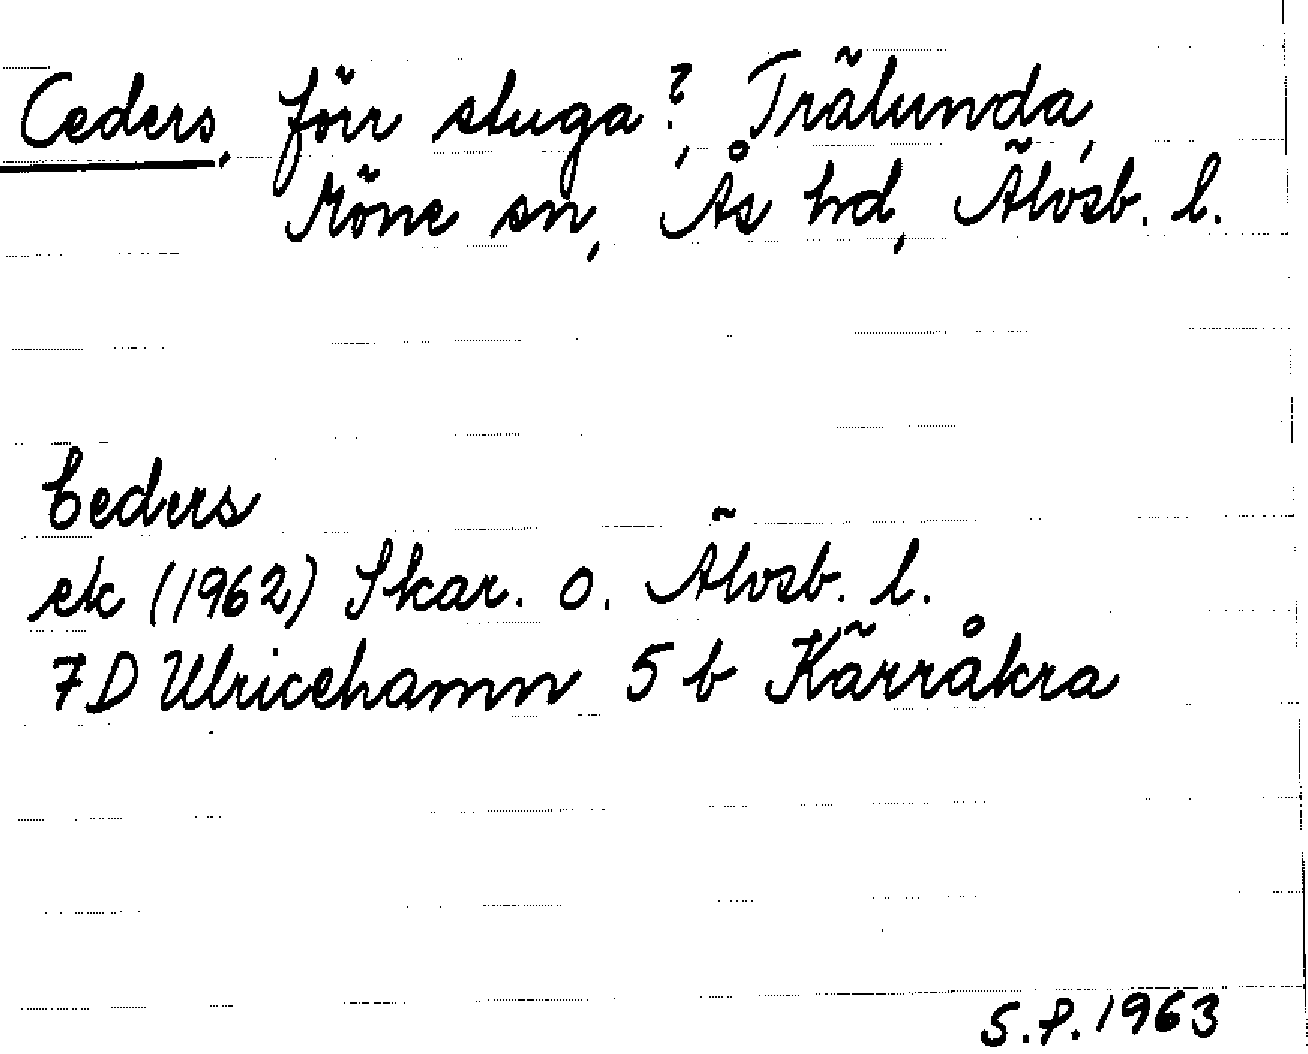 Ceders, förr stuga?, Trälunda,
Röne sn, Ås hd, Älvsb. l.
Ceders
ek (1962) Skar. o. Älvsb. l.
7D Ulricehamn 5 b Kärråkra
S.P. 1963